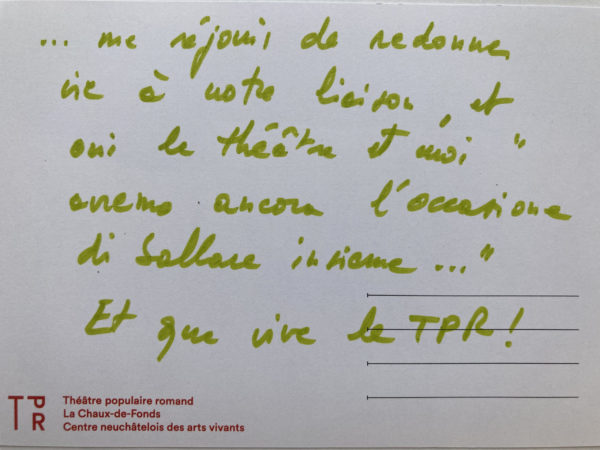 ... me réjouis de redonner
vie à notre liaison, et
oui le théâtre et moi "
avremo ancora l'occasione
di ballare insieme ..."
Et que vive le TPR !
TPR
Théâtre populaire romand
La Chaux-de-Fonds
Centre neuchâtelois des arts vivants